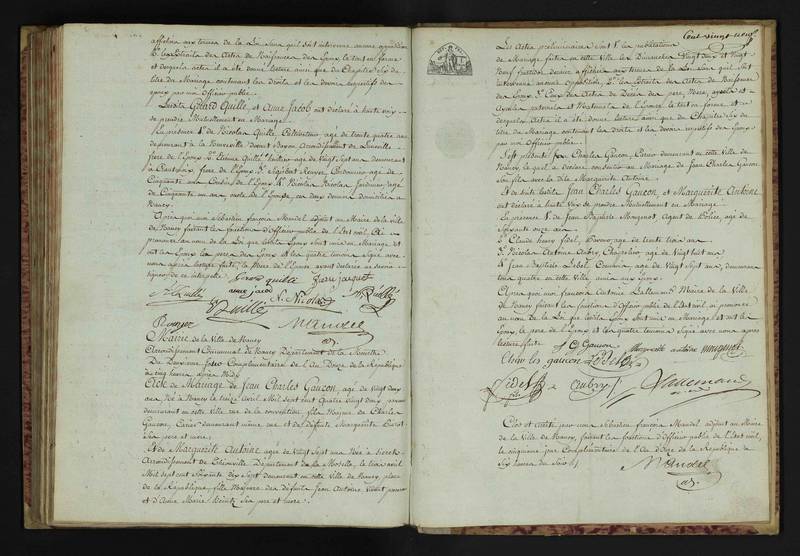 affiches aux termes de la Loi sans qu'il soit intervenu aucune opposition
2° les Extraits des Actes de Naissances des Epoux, le tout en forme
et desquels actes il a été donné lecture ainsi que du Chapitre six du
titre du Mariage contenant les droits et les devoirs respectifs des
epoux par nous Officier public.
Lesdits Gérard Quille, et Anne Jacob ont déclaré à haute voix
se prendre Mutuellement en Mariage.
En présence 1° de Nicolas Quille, Cultivateur, age de trente quatre ans
demeurant à la Neuveville devant Bayon Arrondissement de Luneville
frere de l'Epoux 2° Etienne Quille, age de vingt sept ans demeurant
frere de l'Epoux 3° Cordonnier age de
Cinquante ans Cousin de l'Epoux 4° Nicolas Nicolas Jardinier age
de Cinquante un ans oncle de l'Epouse, ces deux derniers domiciliés à
Nancy.
Après quoi moi Sébastien françois Mandel adjoint au Maire de la ville
de Nancy faisant les fonctions d'Officier public de l'Etat civil, Ai
prononcé au nom de la Loi que lesdits Epoux sont unis en Mariage et
ont les Epoux les peres des Epoux et les quatre temoins Signé avec
nous après lecture faite, la Mere de l'Epouse ayant déclaré ne savoir
signer de ce interpellé.
Girard quille Jean jacquet
anne jacob
N. Nicolas N. Quille
E Quille
E Quillé
Mandel
adj.
Mairie de la Ville de Nancy
Arrondissement Communal de Nancy Département de la Meurthe
Du Deuxieme jour Complementaire de l'An Douze de la République
à cinq heures après Midy
Acte de Mariage de Jean Charles Gaucon, agé de Vingt deux
ans Né à Nancy le treize avril Mil sept cent quatre Vingt deux
demeurant en cette Ville rue de la convention, fils Majeur de Charles
Gaucon, Carier demeurant même rue et de défunte Marguerite
Ses pere et mere;
Et de Marguerite Antoine agée de Vingt Sept ans Née à Sierck
Arrondissement de Thionville Departement de la Moselle, le trois avril
Mil sept cent Soixante dix Sept demeurant en cette Ville de Nancy place
de la République, fille Majeure des défunts Jean Antoine
et d'Anne Marie Ses pere et mere.
Cent vingt neuf
Les Actes preliminaires sont 1° les publications
de Mariage faites en cette Ville les Dimanches Vingt deux et Vingt
Neuf fructidor dernier, affichées aux termes de la Loi sans qu'il soit
intervenu aucune opposition. 2° les Extraits des Actes de Naissance
des Epoux 3° Ceux des Actes de Décès des pere, Mere, ayeuls et
Ayeules paternels et Maternels de l'Epouse le tout en forme et
desquels Actes il a été donné lecture ainsi que du Chapitre Six du
titre du Mariage contenant les droits et les devoirs respectifs des Epoux
par nous Officier public.
S'est présenté Charles Gaucon, Carier demeurant en cette Ville de
Nancy, lequel a déclaré consentir au Mariage de Jean Charles Gaucon
Son fils avec la dite Marguerite Antoine.
Et de suite lesdits Jean Charles Gaucon et Marguerite Antoine
ont déclaré à haute Voix se prendre Mutuellement en Mariage.
En présence 1° de Jean Baptiste Mougenot, Agent de Police, agé de
Soixante onze ans.
2° Claude henry fidel, agé de trente trois ans
3° Nicolas Antoine Aubry, Chapelier agé de Vingt huit ans
4° Jean Baptiste Lebel, agé de Vingt Sept ans, demeurant
tous quatre en cette Ville Amis aux Epoux.
Après quoi moi francois Antoine Lallemand Maire de la Ville
de Nancy faisant les fonctions d'Officier public de l'Etat civil, ai prononcé
au nom de la Loi que lesdits Epoux sont unis en Mariage et ont les
Epoux, le pere de l'Epoux et les quatre temoins Signé avec nous après
lecture faite.
J C Gaucon Marguerite antoine mougenot
Charles gaucon Lebel
fidel aubry Lallemand
maire
Clos et arrêté par nous Sébastien francois Mandel adjoint au Maire
de la Ville de Nancy, faisant les fonctions d'Officier public de l'Etat civil,
le cinquieme jour Complementaire de l'An Douze de la République à
Six heures du Soir.
Mandel
adj.